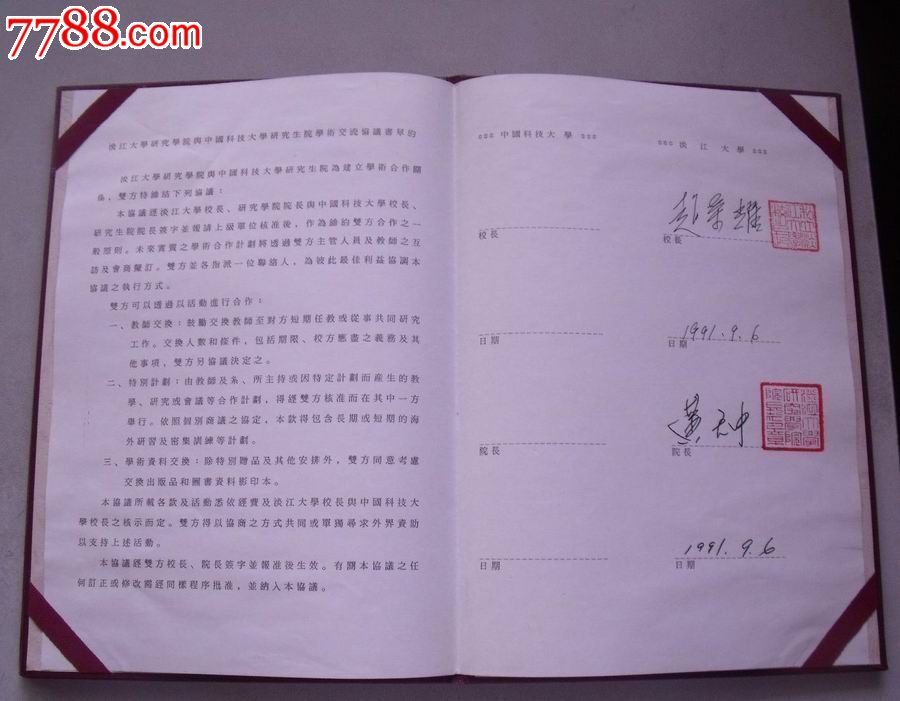 7788.com
淡江大學研究學院與中國科技大學研究生院學術交流協議書草約
淡江大學研究學院與中國科技大學研究生院為建立學術合作關
係，雙方特締結下列協議：
本協議逕淡江大學校長、研究學院院長與中國科技大學校長、
研究生院院長簽字並報請上級單位核准後，作為締約雙方合作之一
般原則。未來實質之學術合作計劃將透過雙方主管人員及教師之互
訪及會商釐訂。雙方並各指派一位聯絡人，為彼此最佳利益協調本
協議之執行方式。
雙方可以透過以活動進行合作：
一、教師交換：鼓勵交換教師至對方短期任教或從事共同研究
工作。交換人數和條件，包括期限、校方應盡之義務及其
他事項，雙方另協議決定之。
二、特別計劃：由教師及系、所主持或因特定計劃而產生的教
學、研究或會議等合作計劃，得經雙方核准而在其中一方
舉行。依照個別商議之協定，本款得包含長期或短期的海
外研習及密集訓練等計劃。
三、學術資料交換：除特別贈品及其他安排外，雙方同意考慮
交換出版品和圖書資料影印本。
本協議所載各款及活動悉依經費及淡江大學校長與中國科技大
學校長之核示而定。雙方得以協商之方式共同或單獨尋求外界資助
以支持上述活動。
本協議經雙方校長、院長簽字並報准後生效。有關本協議之任
何訂正或修改需經同樣程序批准，並納入本協議。
¤¤¤ 中國科技大學 ¤¤¤
¤¤¤ 淡江大學 ¤¤¤
趙榮耀
校長
校長
1991.9.6
日期
日期
黃天中
院長
院長
1991.9.6
日期
日期